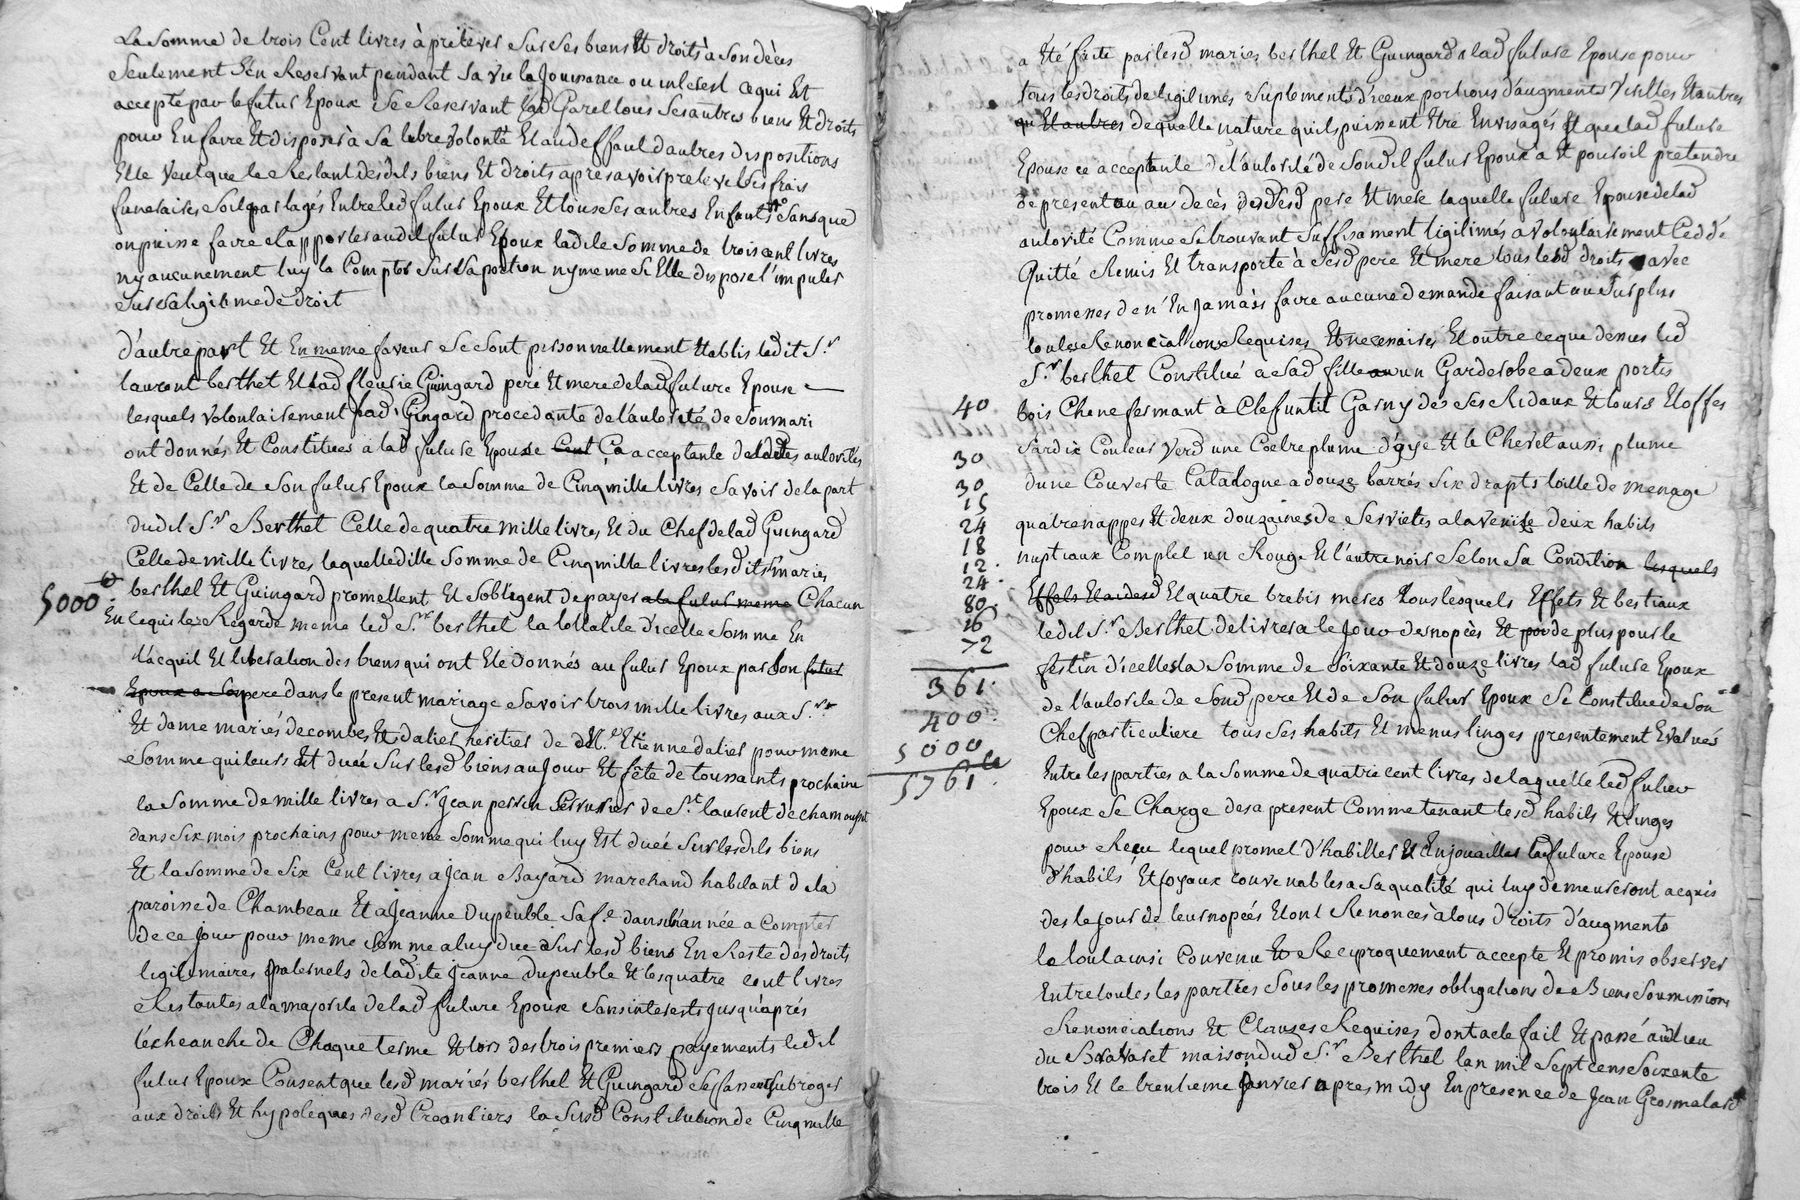 La somme de trois Cent livres à prélever sur ses biens Et droits à son décès
seulement s'en Reservant pendant sa vie la Jouissance ou interest ce qui Est
accepté par le futur Epoux se Reservant lad Garel tous ses autres biens Et droits
pour En faire Et disposer à sa libre volonté Et au deffaut d'autres dispositions
Elle veut que le Restant desdits biens Et droits apres avoir prelevé les frais
funeraires soit partagés Entre led futur Epoux Et tous ses autres Enfants sans que
on puisse faire rapporter audit futur Epoux ladite somme de trois cent livres
ny aucunement luy la Compter sur sa portion ny meme si Elle dispose l'imputer
sur sa legitime de droit
D'autre part Et En meme faveur se sont personnellement Etablis ledit S.r
laurent berthet Et lad fleurie Guingard pere Et mere de lad future Epouse
lesquels volontairement lad Gingard procedante de l'autorité de son mari
ont donnés Et Constitués à lad future Epouse Cent Ca acceptante desdites autorités
Et de Celle de son futur Epoux la somme de Cinq mille livres savoir de la part
dudit S.r Berthet Celle de quatre mille livres Et du Chef de lad Guingard
Celle de mille livres laquelle ditte somme de Cinq mille livres lesdits maries
5000 berthet Et Guingard promettent Et s'obligent de payer a la futur meme Chacun
En ce qui le Regarde meme led S.r berthet la totalité d'icelle somme En
l'acquit Et liberation des biens qui ont Eté donnés au futur Epoux par son futur
Epoux a son pere dans le present mariage savoir trois mille livres aux S.rs
Et dame mariés decombes Et dalier heritier de M.e Etienne dalier pour meme
somme qui leurs Est duée sur lesd biens au Jour Et fête de toussaints prochaine
la somme de mille livres a S.r Jean perrin serrurier de S.t laurent de chamousset
dans six mois prochains pour meme somme qui luy Est duée sur lesdits biens
Et la somme de six Cent livres a Jean Bayard marchand habitant de la
paroisse de Chambeau Et a Jeanne Dupeuble sa f.e dans l'année a Compter
de ce Jour pour meme somme a luy due sur lesd biens En Reste des droits
legitimaires paternels de ladite Jeanne Dupeuble Et les quatre cent livres
Restantes a la majorité de lad future Epouse sans interests jusqu'après
l'écheanche de Chaque terme Et lors des trois premiers payements ledit
futur Epoux Consent que lesd mariés berthet Et Guingard se fassent subroger
aux droits Et hypoteques desd Creantiers la susd Constitution de Cinq mille
a Eté faite par lesd maries berthet Et Guingard a lad future Epouse pour
tous les droits de legitimes suplements d'iceux portions d'augments virilles Et autres
qu Et autres de quelle nature qu'ils puissent Etre Envisagés Et que lad future
Epouse ce acceptante de l'autorité de sondit futur Epoux a Et pouroit pretendre
de present ou au decès desd pere Et mere laquelle future Epouse de lad
autorité Comme se trouvant suffisament legitimés a volontairement Ceddé
Quitté Remis Et transporté à sesd pere Et mere tous lesd droits avec
promesses de n'En jamais faire aucune demande faisant au surplus
toutes Renonciations Requises Et necessaires Et outre ce que dessus led
S.r berthet Constitué a sad fille au un Garderobe a deux portes
40 bois Chene fermant à Clef un lit Garny de ses Ridaux Et tours Etoffes
30 sardix Couleur verd une Coetre plume d'oye Et le Chevet aussi plume
30 d'une Couverte Catalogne a douze barrés six drapts toille de menage
15
24 quatre nappes Et deux douzaines de serviettes a la venise deux habits
18
12 nuptiaux Complet un Rouge Et l'autre noir selon sa Condition lesquels
24
80 Effets Et aidesd Et quatre brebis meres tous lesquels Effets Et bestiaux
16 ledit S.r Berthet delivrera le Jour des nopces Et por de plus pour le
72 festin d'icelles la somme de soixante Et douze livres lad future Epouse
361 de l'autorité de sond pere Et de son futur Epoux se Constitue de son
400 Chef particuliere tous ses habits Et menus linges presentement Evalués
5000
5761 Entre les parties a la somme de quatre cent livres de laquelle led futur
Epoux se Charge des a present Comme tenant lesd habits Et linges
pour Recu lequel promet d'habiller Et Enjouailler lad future Epouse
d'habits Et joyaux convenables a sa qualité qui luy demeureront acquis
des le jour de leurs nopces Et ont Renoncés à tous droits d'augments
le tout ainsi Convenu Et Reciproquement accepte Et promis observer
Entre toutes les parties sous les promesses obligations de Biens soumissions
Renonciations Et Clauses Requises dont acte fait Et passé au lieu
du Bravaret maison dud S.r Berthet l'an mil sept cens soixante
trois Et le trentieme Janvier apres midy En presence de Jean Grosmalard